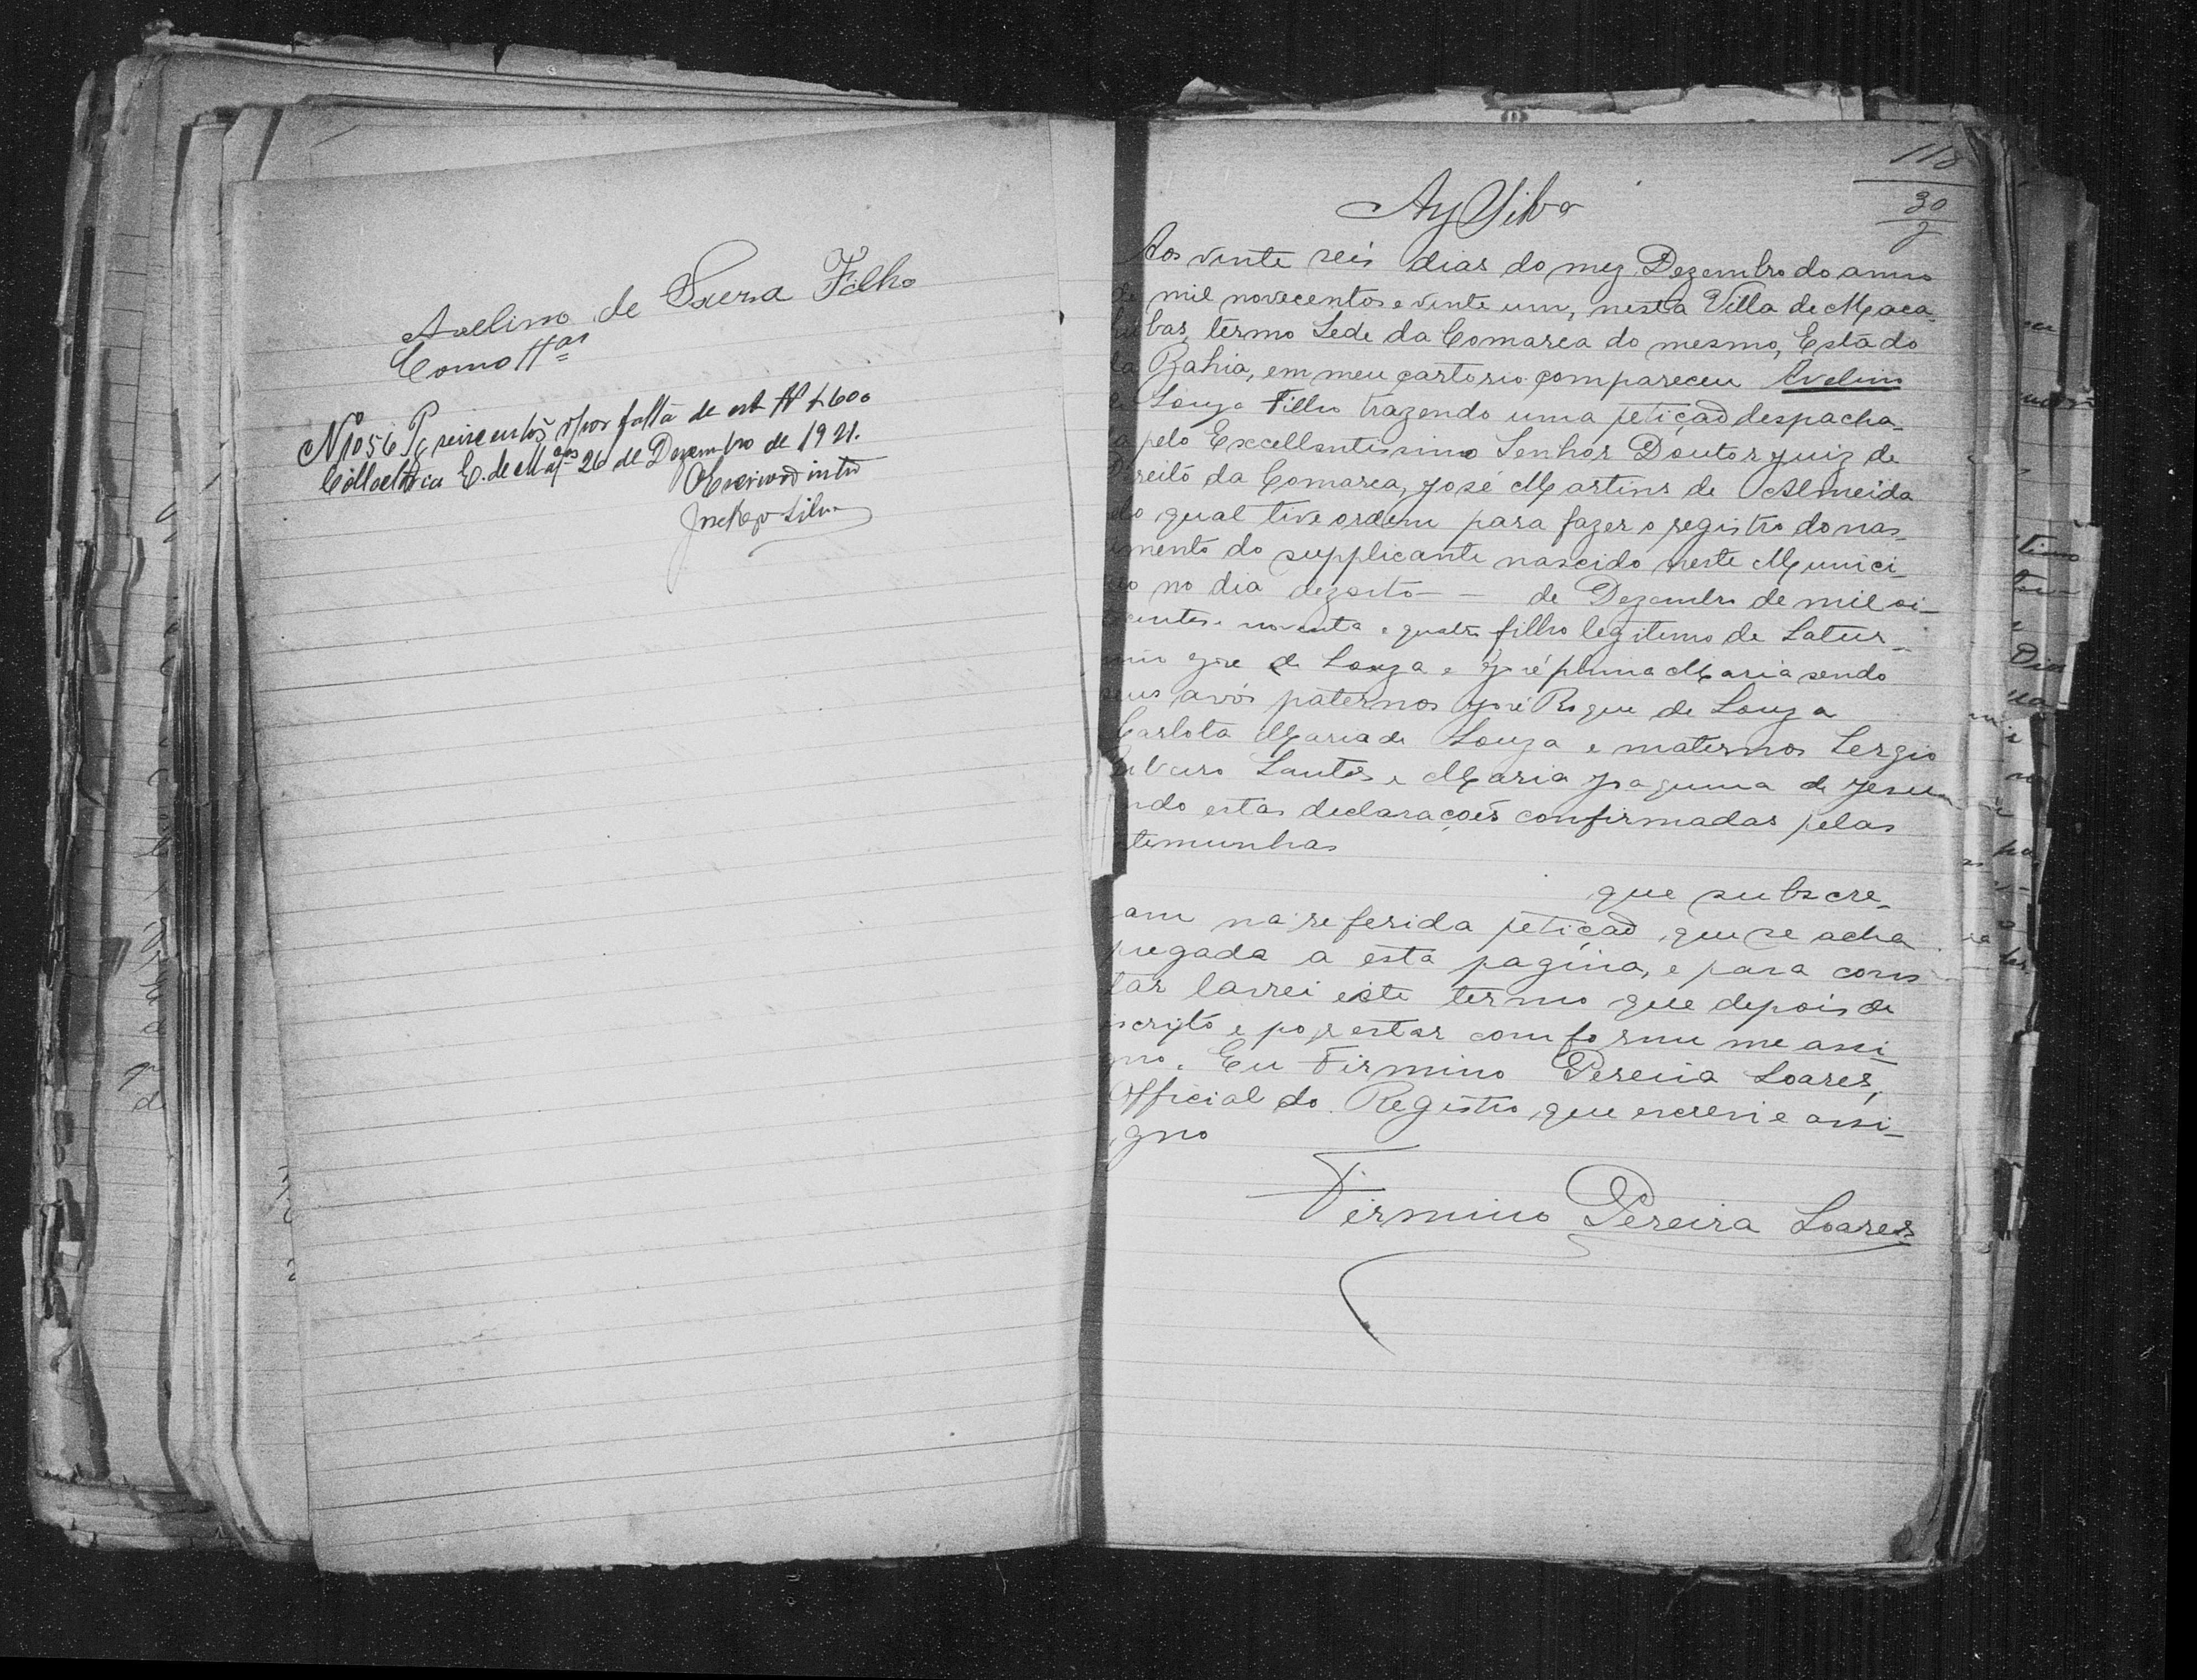 Avelino de Souza Filho
Como Ttas
N 1056 Pg seiscentos rs por falta de est. Rs $600
Collectoria E. de Macas 26 de Dezembro de 1921.
O Escrivão intro
Silva
118
30
Ay Silva
Aos vinte seis dias do mez Dezembro do anno
de mil novecentos e vinte um, nesta Villa de Maca
hubas, termo Sede da Comarca do mesmo, Estado
da Bahia, em meu cartorio compareceu Avelino
de Souza Filho trazendo uma petição despacha-
da pelo Excellentissimo Senhor Doutor Juiz de
Direito da Comarca, José Martins de Almeida
do qual tive ordem para fazer o registro do nas-
cimento do supplicante nascido neste Munici-
pio no dia dezoito — de Dezembro de mil oi-
centos noventa e quatro filho legitimo de Satur-
nino José de Souza e Joséphina Maria sendo
seus avós paternos José Roque de Souza
Carlota Maria de Souza e maternos Sergio
Santos e Maria Joaquina de Jesus
ndo estas declarações confirmadas pelas
temunhas
que subscre-
am na referida petição, que se acha
pregada a esta pagina, e para cons
tar lavrei este termo que depois de
scripto e por estar comforme me assi
gno. Eu Firmino Pereira Soares,
Official do Registro que escrevi e assi-
gno
Firmino Pereira Soares